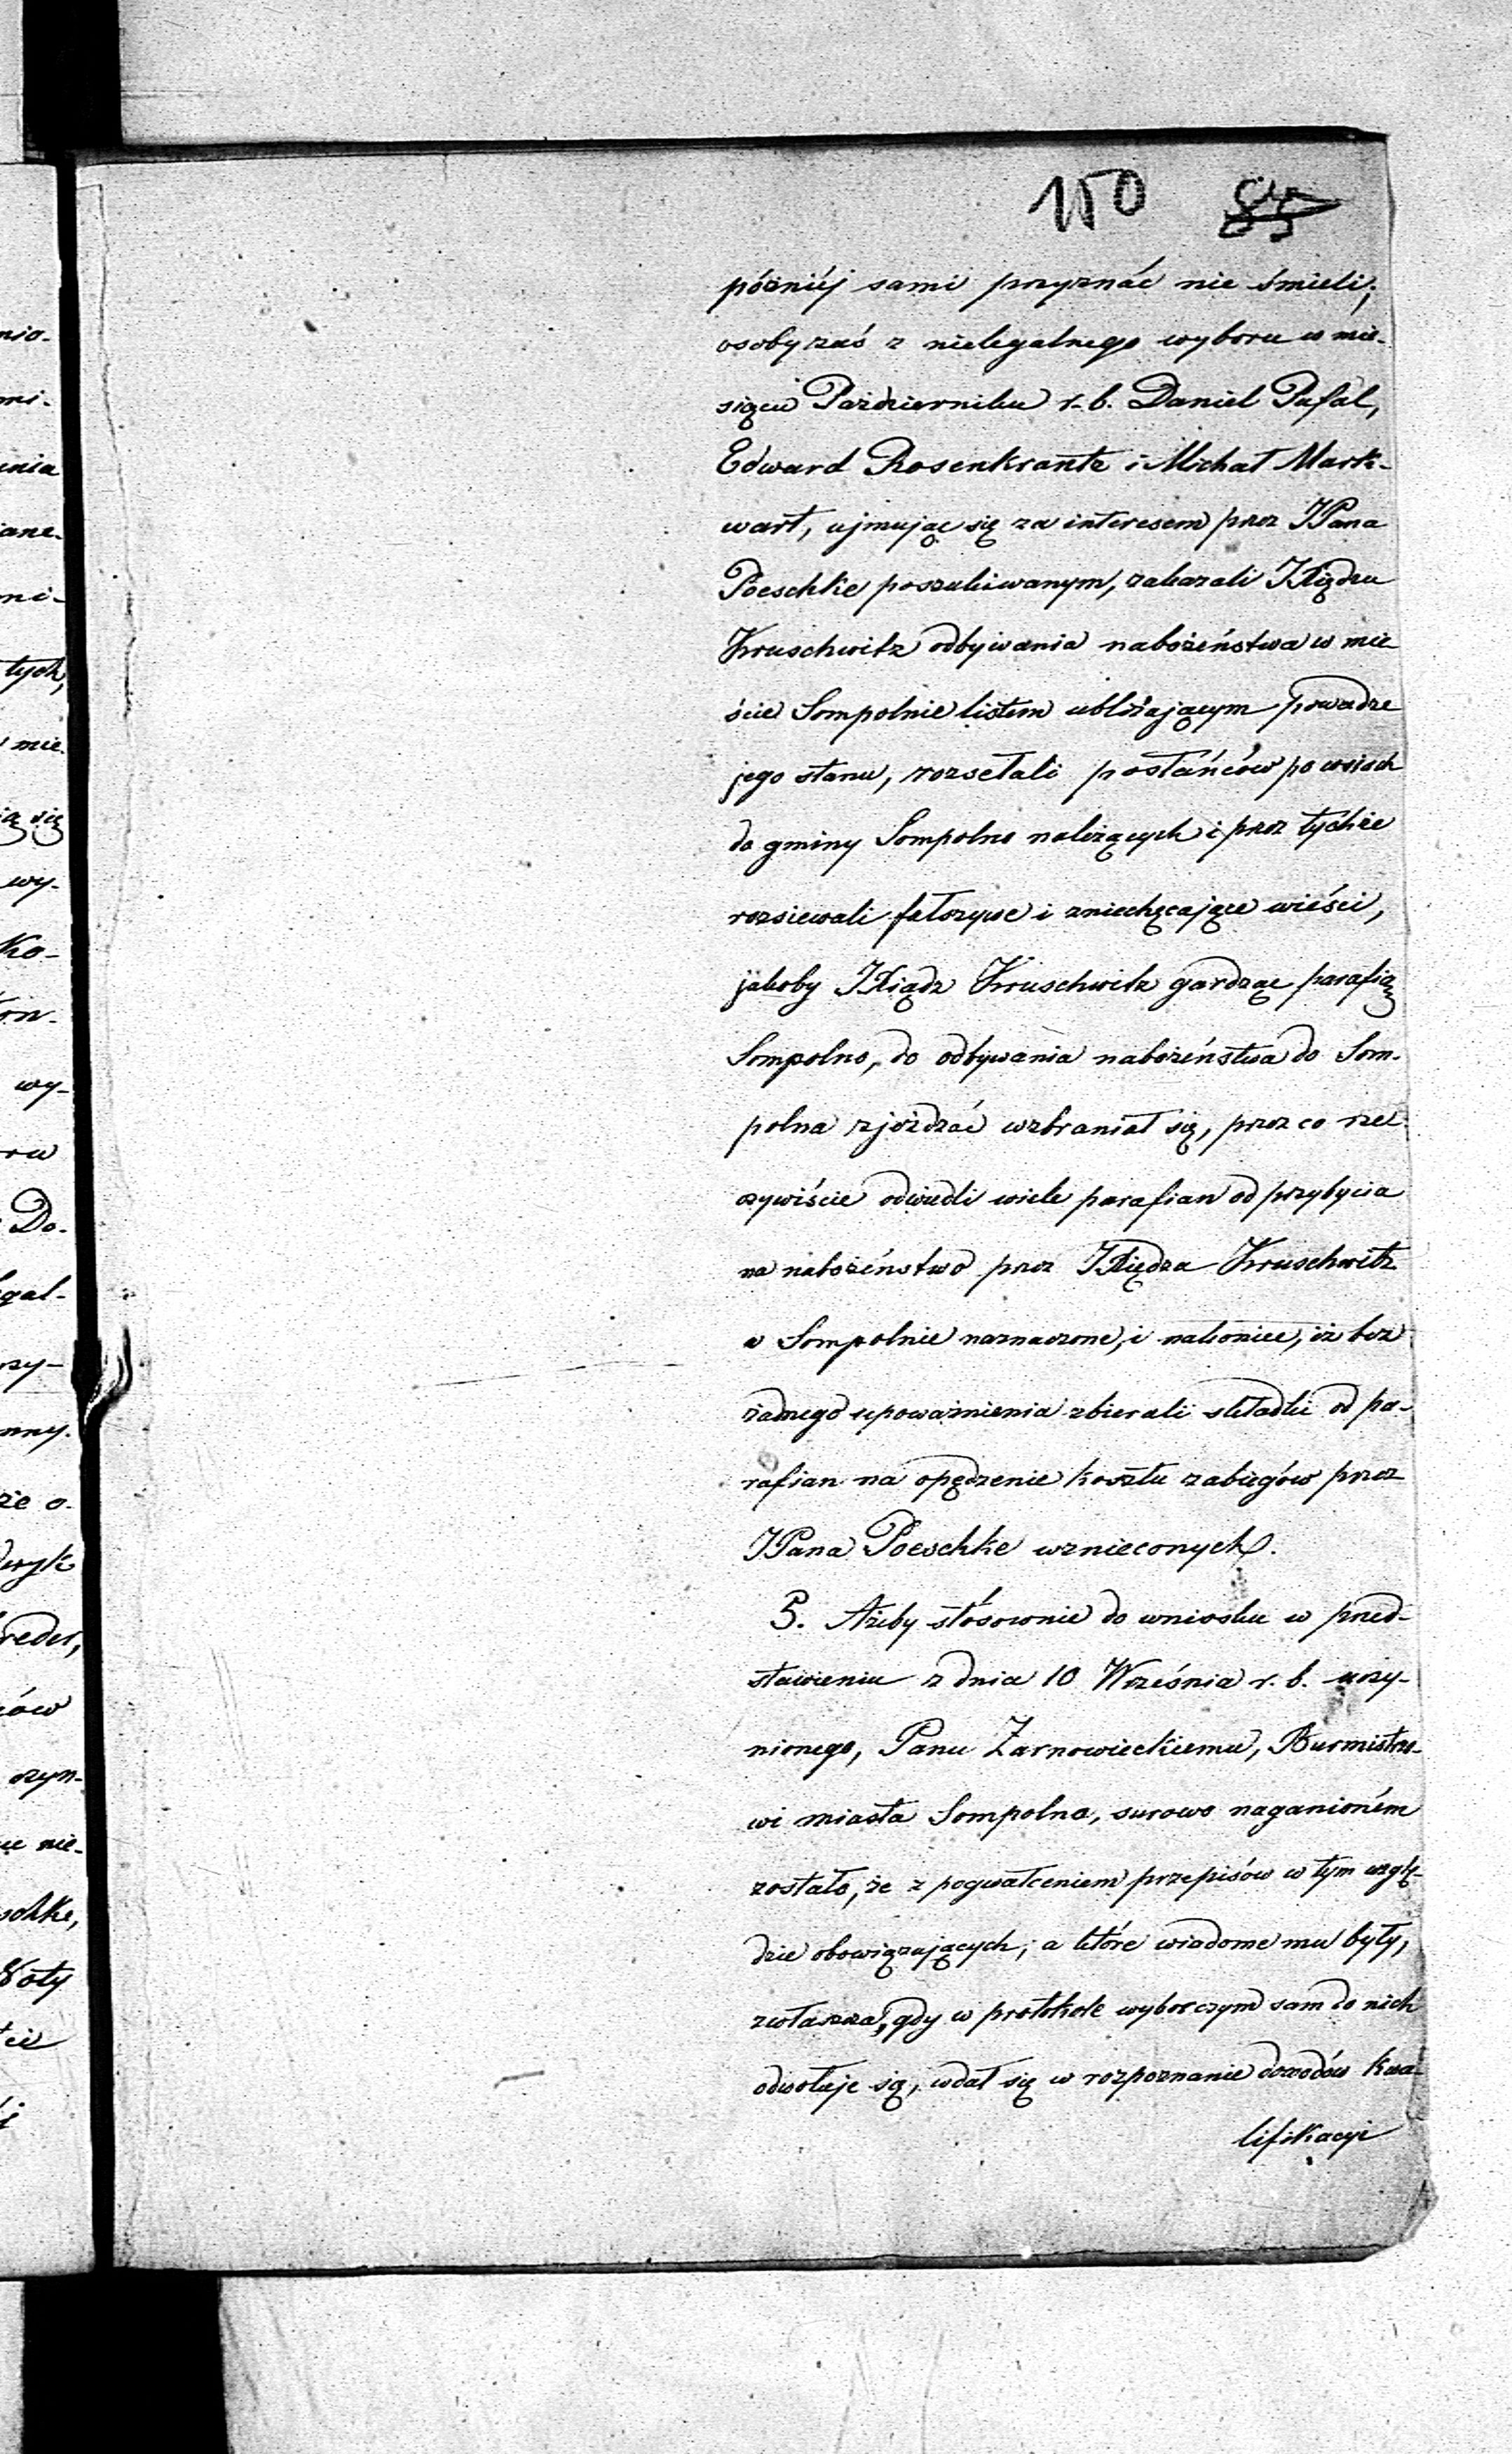 150 85
późniéj sami przyznać nie śmieli;
osoby zaś z nielegalnego wyboru w mie-
siącu Październiku r. b. Daniel Pufal,
Edward Rosenkrantz i Michał Mark-
wart, ujmując się za interesem przez JPana
Poeschke poszukiwanym, zakazali JXiędzu
Kruschwitz odbywania nabożeństwa w mie-
ście Sompolnie listem ubliżającym powadze
jego stanu, rozsełali posłańców po wsiach
do gminy Sompolno należących i przez tychże
rozsiewali fałszywe i zniechęcające wieści,
jakoby JXiądz Kruschwitz gardząc parafią
Sompolno, do odbywania nabożeństwa do Som-
polna zjeżdżać wzbraniał się, przez co rze-
czywiście odwiedli wiele parafian od przybycia
na nabożeństwo przez JXiędza Kruschwitz
w Sompolnie naznaczone, i nakoniec, iż bez
żadnego upoważnienia zbierali składki od pa-
rafian na opędzenie kosztu zabiegów przez
JPana Poeschke wznieconych.
5. Ażeby stósownie do wniosku w przed-
stawieniu z dnia 10 Września r. b. uczy-
nionego, Panu Żarnowieckiemu, Burmistrzo-
wi miasta Sompolna, surowo naganioném
zostało, że z pogwałceniem przepisów w tym wzglę-
dzie obowiązujących, a które wiadome mu były,
zwłaszcza, gdy w protokole wyborczym sam do nich
odwołuje się, wdał się w rozpoznanie dowodów kwa-
lifikacyi
nio-
mi-
enia
iane-
ni-
tych,
mie
ią się
wy-
Ko-
on-
wy-
ru
Do-
gal-
zy-
nny.
że o-
dryk
redel,
ców
czyn-
nie-
schke,